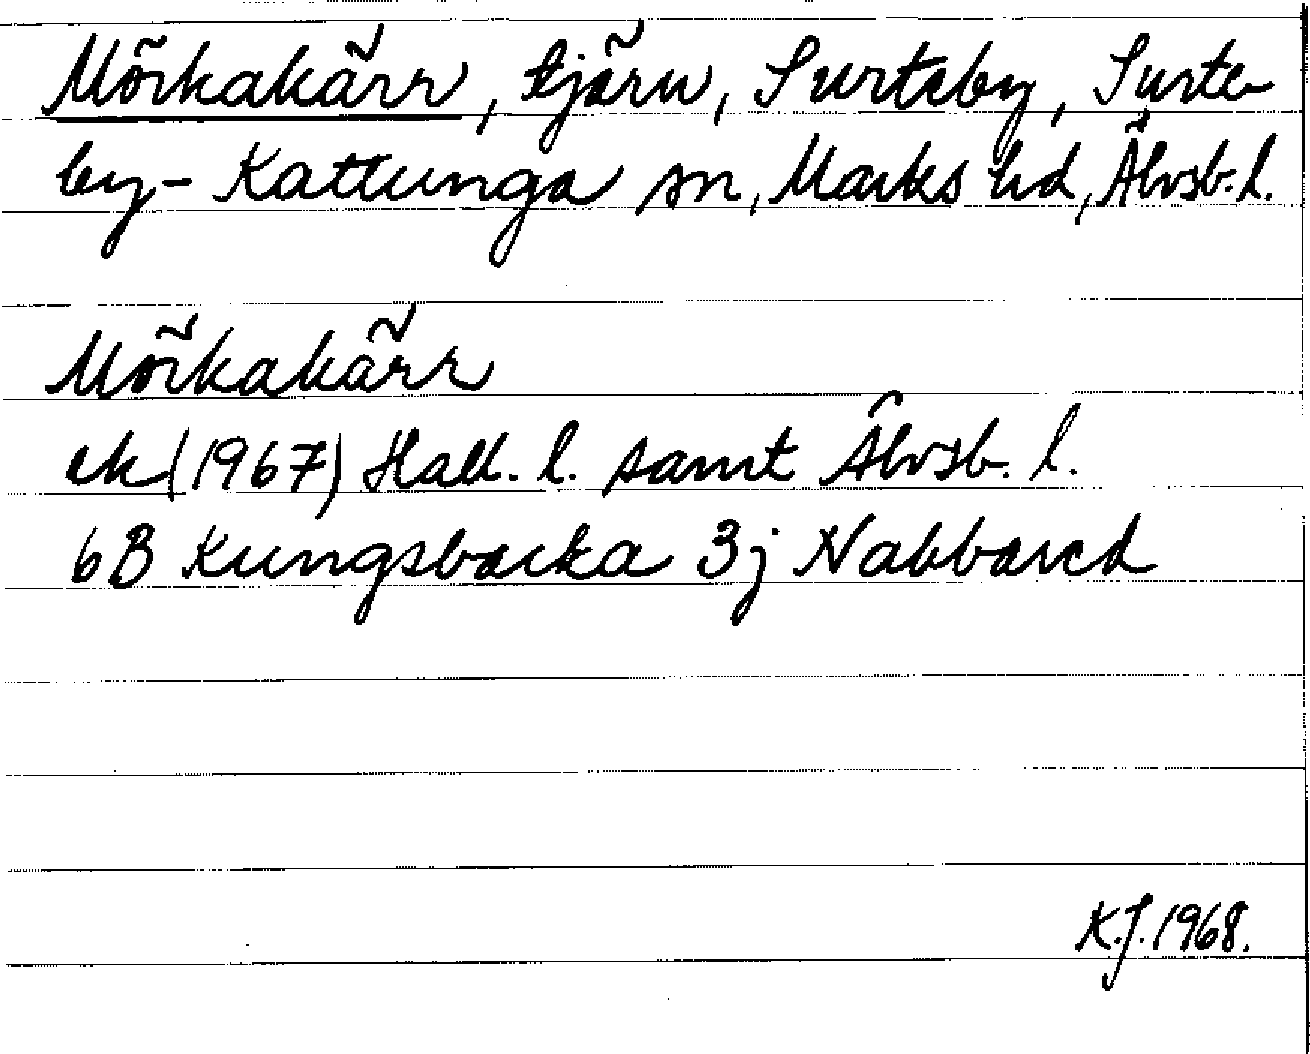 Mörkakärr, tjärn, Surteby, Surte-
by-Kattunga sn, Marks hd, Älvsb. l.
Mörkakärr
ek (1967) Hall. l. samt Älvsb. l.
6B Kungsbacka 3j Nabbared
K.J. 1968.